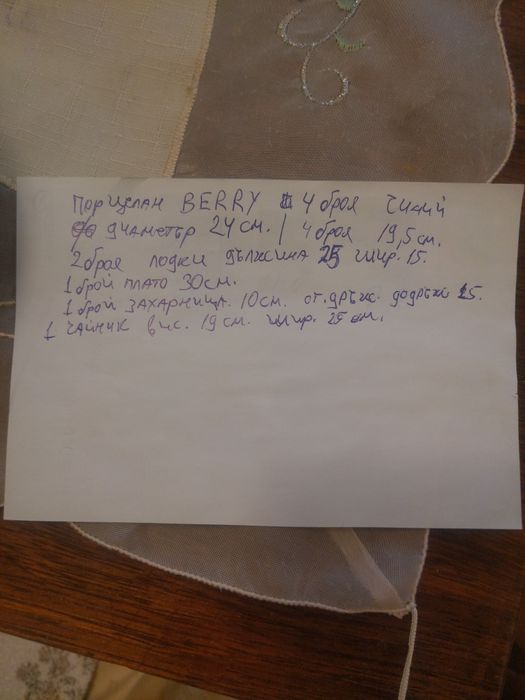 Порцелан BERRY 4 броя чиний
диаметър 24 см. / 4 броя 19,5 см.
2 броя лодки дължина 25 шир. 15.
1 брой плато 30 см.
1 брой захарница. 10 см. от дръж. додръж 15.
1 чайник вис. 19 см. шир. 25 см.